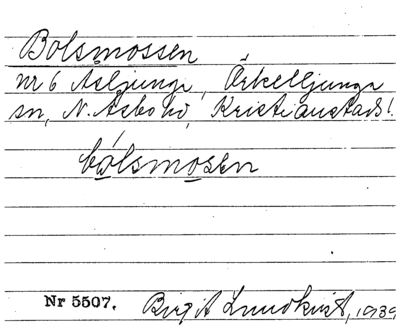 Bolsmossen
nr 6 Asljunga, Örkelljunga
sn, N. Åsbo hd, Kristianstads l.
bolsmosen
Nr 5507. Birgit Lundkvist, 1939